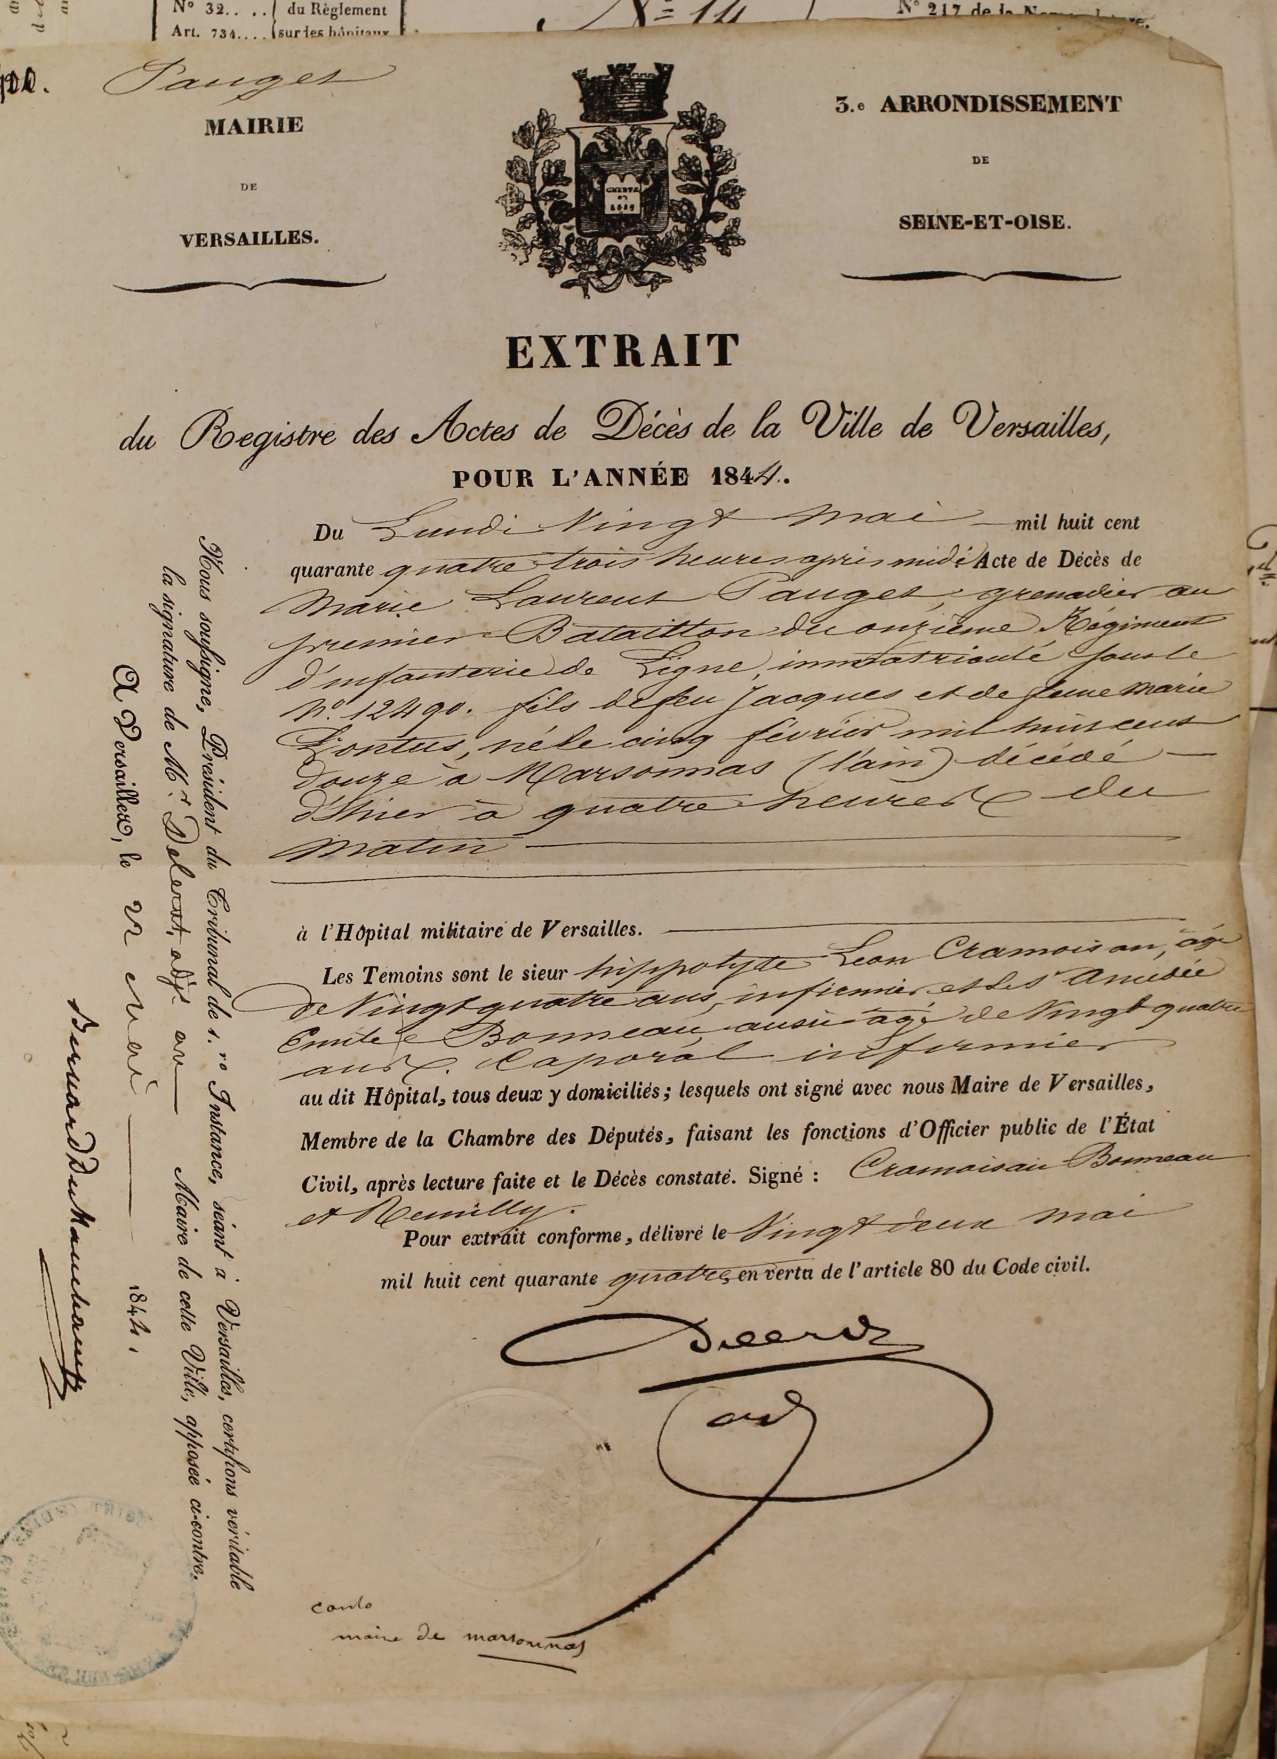 N° 32.. .. du Règlement
Art. 734.... sur les hôpitaux
N° 14
N° 217 de la
Pauget
MAIRIE
DE
VERSAILLES.
CHARTE
DE
1830
3.e ARRONDISSEMENT
DE
SEINE-ET-OISE.
EXTRAIT
du Registre des Actes de Décès de la Ville de Versailles,
POUR L'ANNÉE 1844.
Du Lundi Vingt mai mil huit cent
quarante quatre trois heures après midi Acte de Décès de
Marie Laurent Pauget, grenadier au
premier Bataillon du onzième Régiment
d'infanterie de Ligne, immatriculé sous le
N° 12490. fils de feu Jacques et de feue Marie
né le cinq février mil huit cent
douze à Marsonnas (l'ain) décédé
d'hier à quatre heures du
matin
à l'Hôpital militaire de Versailles.
Les Temoins sont le sieur hippolyte Leon Cramoisan, âgé
de Vingt quatre ans, infirmier et le Sr Amédée
Emile Bonneau, aussi âgé de Vingt quatre
ans. Caporal infirmier
au dit Hôpital, tous deux y domiciliés; lesquels ont signé avec nous Maire de Versailles,
Membre de la Chambre des Députés, faisant les fonctions d'Officier public de l'État
Civil, après lecture faite et le Décès constaté. Signé: Cramoisan Bonneau
et Remilly.
Pour extrait conforme, délivré le Vingt deux mai
mil huit cent quarante quatre, en vertu de l'article 80 du Code civil.
adj
maire de marsonnas
Nous soussigné, Président du Tribunal de 1.re Instance, séant à Versailles, certifions véritable
la signature de Mr. Delerot, adjt. au Maire de cette Ville, apposée ci-contre.
A Versailles, le 22 mai 1844.